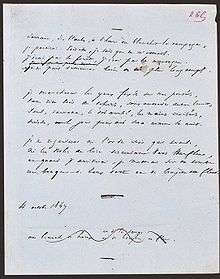 demain, dès l'aube, à l'heure où blanchit la campagne,
je partirai. Vois-tu, je sais que tu m'attends.
j'irai par la forêt, j'irai par la montagne.
je ne puis demeurer loin de toi plus longtemps.
je marcherai les yeux fixés sur mes pensées,
sans rien voir au dehors, sans entendre aucun bruit,
seul, inconnu, le dos courbé, les mains croisées,
triste, et le jour pour moi sera comme la nuit.
je ne regarderai ni l'or du soir qui tombe
ni les voiles au loin descendant vers Harfleur,
et quand j'arriverai, je mettrai sur ta tombe
un bouquet de houx vert et de bruyère en fleur.
4 octobre 1847